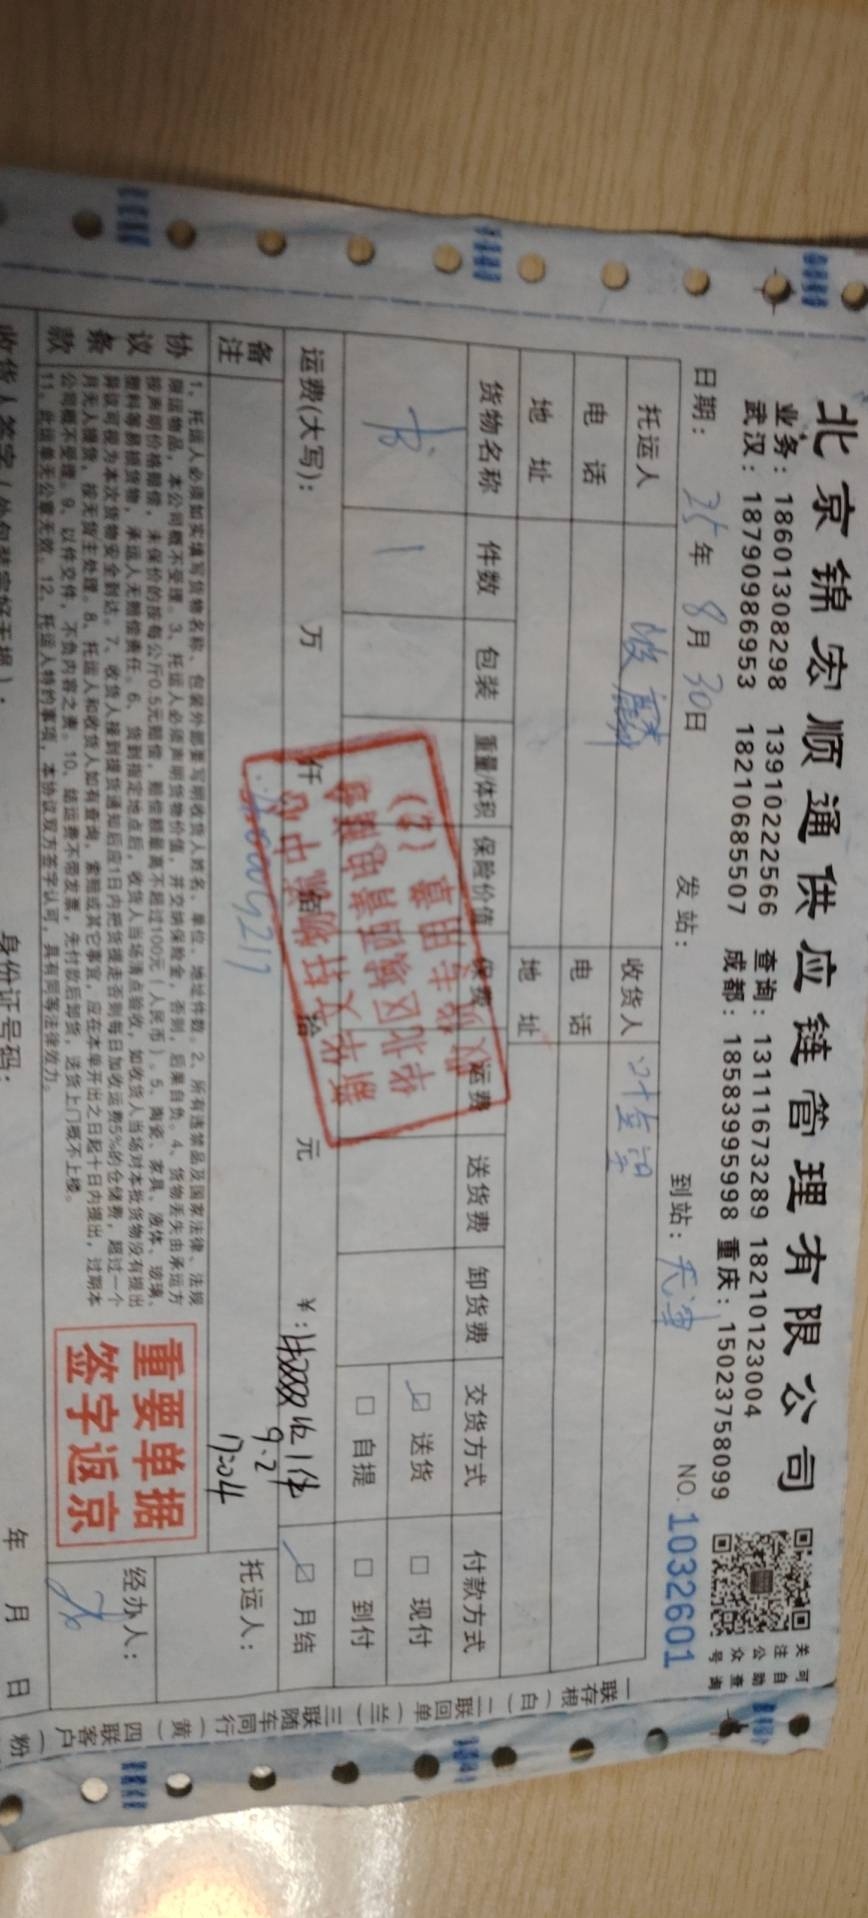 北京锦宏顺通供应链管理有限公司
业务：18601308298 13910222566 查询：13111673289 18210123004
武汉：18790986953 18210685507 成都：18583995998 重庆：15023758099
关注公众号
可自助查询
日期：25年8月30日 发站： 到站：天津 NO.1032601
托运人 收货人
电话 电话
地址 地址
货物名称 件数 包装 重量/体积 保险价值 保费 运费 送货费 卸货费 交货方式 付款方式
书 1 送货 现付
自提 到付
运费(大写)： 万 仟 佰 拾 元 ¥： 月结
1件
9.2
备注
托运人：
协议条款
1、托运人必须如实填写货物名称、包装外部要写明收货人姓名、单位、地址件数。2、所有违禁品及国家法律、法规
限运物品，本公司概不受理。3、托运人必须声明货物价值，并交纳保险金，否则，后果自负。4、货物丢失由承运方
按声明价格赔偿，未保价的按每公斤0.5元赔偿，赔偿额最高不超过100元（人民币）。5、陶瓷、家具、液体、玻璃、
塑料等易损货物，承运人无赔偿责任。6、货到指定地点后，收货人当场清点验收，如收货人当场对本批货物没有提出
异议可视为本次货物安全到达。7、收货人接到提货通知后应1日内把货提走否则每日加收运费5%的仓储费，超过一个
月无人提货，按无货主处理。8、托运人和收货人如有查询，索赔或其它事宜，应在本单开出之日起十日内提出，过期本
公司概不受理。9、以件交件，不负内容之责。10、结运费不带发票，先付款后卸货，送货上门概不上楼。
11、此运单无公章无效。12、托运人特约事项，本协议双方签字认可，具有同等法律效力。
重要单据
签字返京
经办人：
收货人签字（外包装完好无损）： 身份证号码： 年 月 日
一联存根（白）二联回单（兰）三联随车同行（黄）四联客户（粉